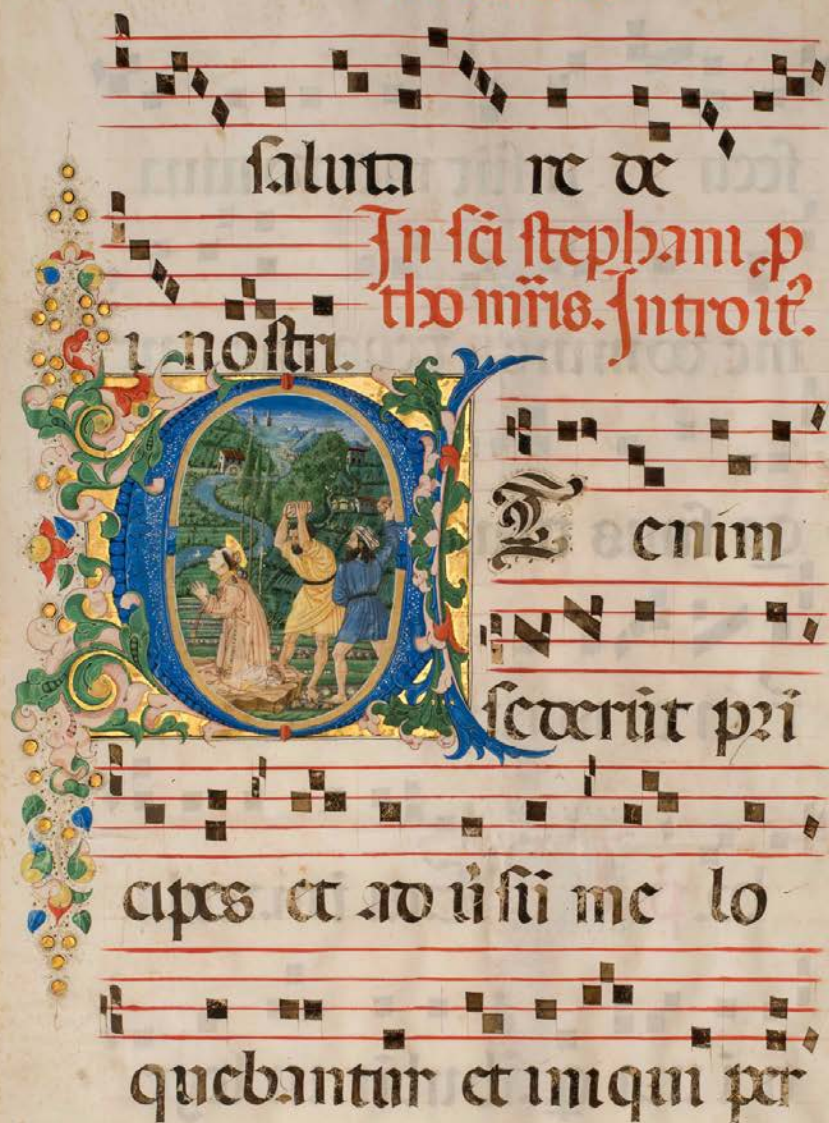 saluta re de
In sči stephani p
tho mr̃is. Introit⁹.
i nostri.
E T enim
sederūt pri
cipes et aduʾsū me lo
quebantur et iniqui per